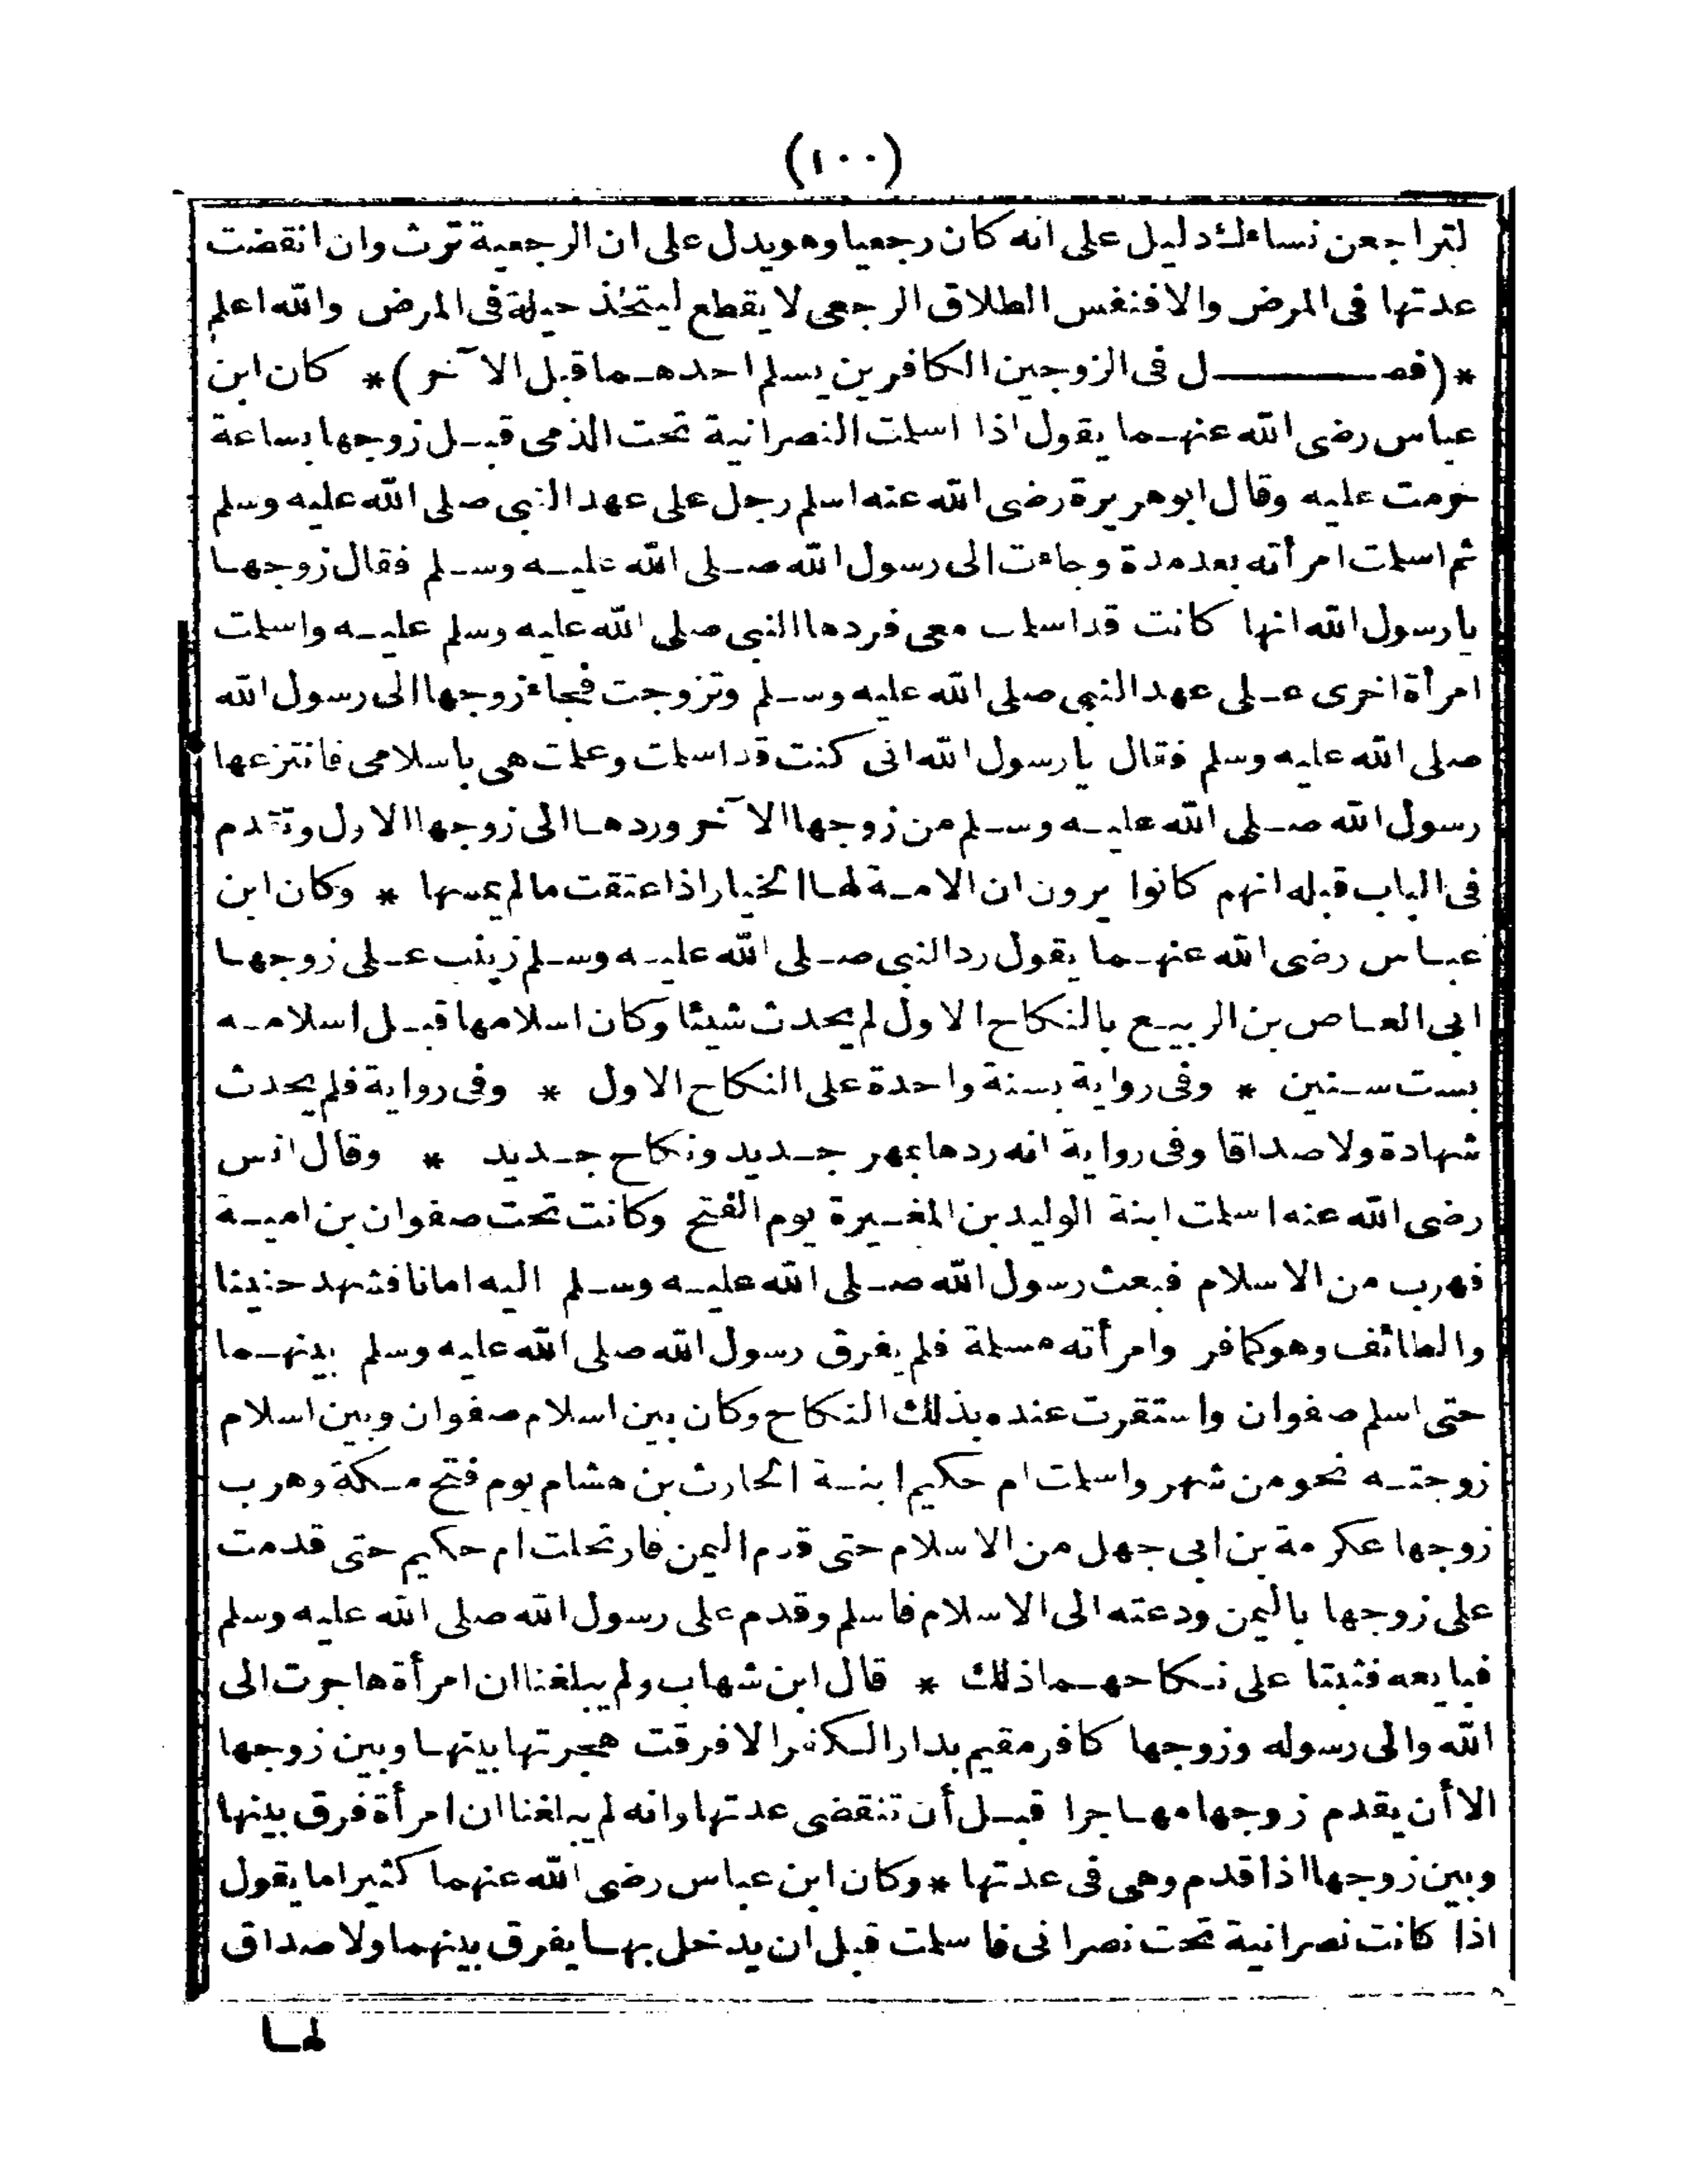 (١٠٠)
لتراجعن نساءك دليل على انه كان رجعيا وهو يدل على ان الرجعية ترث وان انقضت
عدتها فى المرض والا فنفس الطلاق الرجعى لا يقطع ليتخذ حيلة فى المرض والله اعلم
* (فصل فى الزوجين الكافرين يسلم احدهما قبل الآخر) * كان ابن
عباس رضى الله عنهما يقول اذا اسلمت النصرانية تحت الذمى قبل زوجها بساعة
حرمت عليه وقال ابو هريرة رضى الله عنه اسلم رجل على عهد النبى صلى الله عليه وسلم
ثم اسلمت امرأته بعد مدة وجاءت الى رسول الله صلى الله عليه وسلم فقال زوجها
يا رسول الله انها كانت قد اسلمت معى فردها النبى صلى الله عليه وسلم عليه واسلمت
امرأة اخرى على عهد النبى صلى الله عليه وسلم وتزوجت فجاء زوجها الى رسول الله
صلى الله عليه وسلم فقال يا رسول الله انى كنت قد اسلمت وعلمت هى باسلامى فانتزعها
رسول الله صلى الله عليه وسلم من زوجها الآخر وردها الى زوجها الاول وتقدم
فى الباب قبله انهم كانوا يرون ان الامة لها الخيار اذا عتقت مالم يمسها * وكان ابن
عباس رضى الله عنهما يقول رد النبى صلى الله عليه وسلم زينب على زوجها
ابى العاص بن الربيع بالنكاح الاول لم يحدث شيئا وكان اسلامها قبل اسلامه
بست سنين * وفى رواية بسنة واحدة على النكاح الاول * وفى رواية فلم يحدث
شهادة ولا صداقا وفى رواية انه ردها بمهر جديد ونكاح جديد * وقال انس
رضى الله عنه اسلمت ابنة الوليد بن المغيرة يوم الفتح وكانت تحت صفوان بن امية
فهرب من الاسلام فبعث رسول الله صلى الله عليه وسلم اليه امانا فشهد حنينا
والطائف وهو كافر وامرأته مسلمة فلم يفرق رسول الله صلى الله عليه وسلم بينهما
حتى اسلم صفوان واستقرت عنده بذلك النكاح وكان بين اسلام صفوان وبين اسلام
زوجته نحو من شهر واسلمت ام حكيم ابنة الحارث بن هشام يوم فتح مكة وهرب
زوجها عكرمة بن ابى جهل من الاسلام حتى قدم اليمن فارتحلت ام حكيم حتى قدمت
على زوجها باليمن ودعته الى الاسلام فاسلم وقدم على رسول الله صلى الله عليه وسلم
فبايعه فثبتا على نكاحهما ذلك * قال ابن شهاب ولم يبلغنا ان امرأة هاجرت الى
الله والى رسوله وزوجها كافر مقيم بدار الكفر الا فرقت هجرتها بينها وبين زوجها
الا أن يقدم زوجها مهاجرا قبل أن تنقضى عدتها وانه لم يبلغنا ان امرأة فرق بينها
وبين زوجها اذا قدم وهى فى عدتها * وكان ابن عباس رضى الله عنهما كثيرا ما يقول
اذا كانت نصرانية تحت نصرانى فاسلمت قبل ان يدخل بها يفرق بينهما ولا صداق
لها